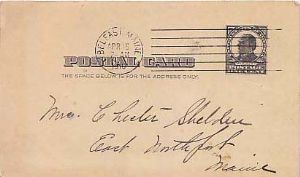 BELFAST, MAINE
APR
POSTAL CARD
THE SPACE BELOW IS FOR THE ADDRESS ONLY.
POSTAGE
ONE CENT
Mrs. Chester Sheldon
East Northport
Maine